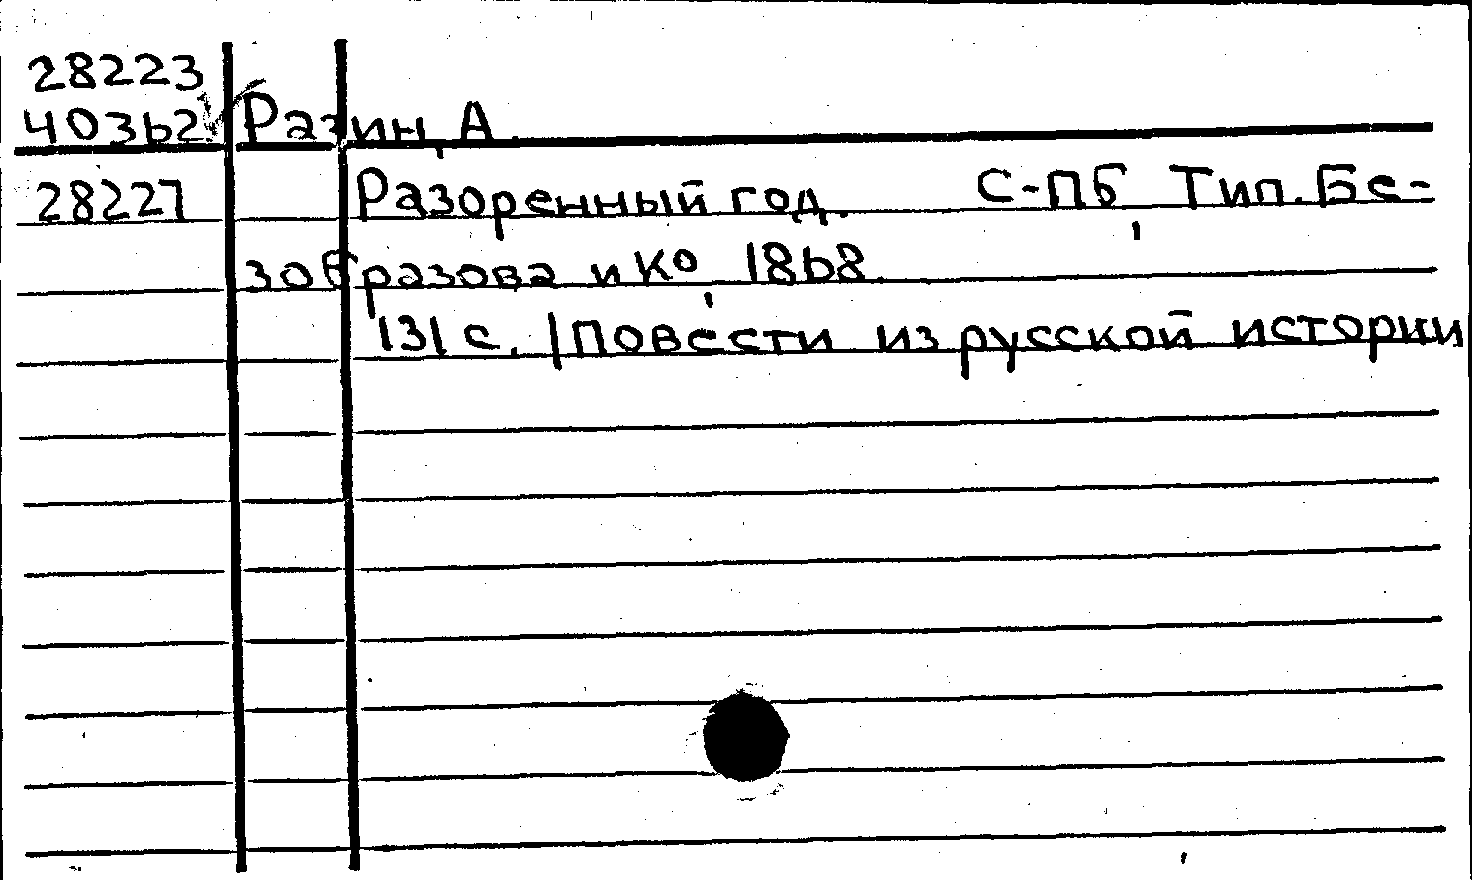 28223
40362 Разин, А.
28227 Разоренный год. С-Пб, Тип. Бе-
зобразова и Ко, 1868.
131 с. /Повести из русской истории